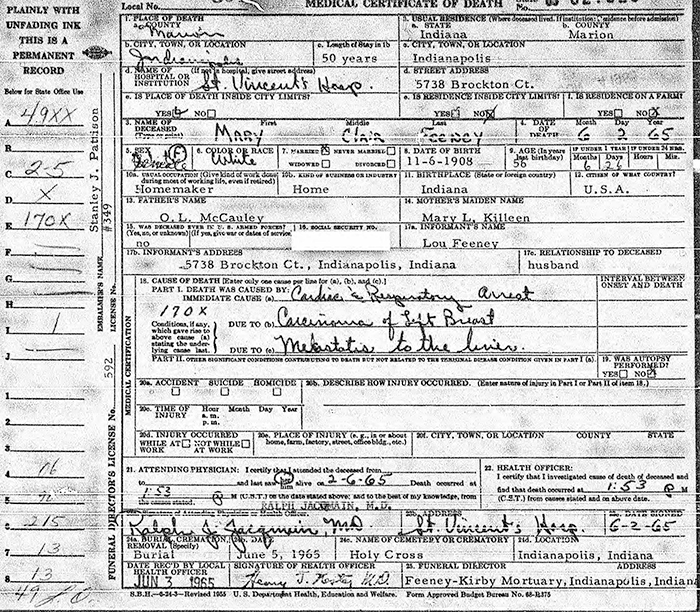 PLAINLY WITH
UNFADING INK
THIS IS A
PERMANENT
RECORD
Below for State Office Use
A 49XX
B
C 2-5
D X
E 170X
F
G
H
I 1
J
1
2
3
4
5
6 215
7 13
8 13
EMBALMER'S NAME Stanley J. Pattison LICENSE No. #349
FUNERAL DIRECTOR'S LICENSE No. 592
MEDICAL CERTIFICATION
Local No.
MEDICAL CERTIFICATE OF DEATH
1. PLACE OF DEATH
a. COUNTY
Marion
2. USUAL RESIDENCE (Where deceased lived. If institution: residence before admission)
a. STATE b. COUNTY
Indiana Marion
b. CITY, TOWN, OR LOCATION c. Length of Stay in 1b
Indianapolis 50 years
c. CITY, TOWN, OR LOCATION
Indianapolis
d. NAME OF (If not in hospital, give street address)
HOSPITAL OR
INSTITUTION St. Vincent's Hosp.
d. STREET ADDRESS
5738 Brockton Ct.
e. IS PLACE OF DEATH INSIDE CITY LIMITS?
YES NO
e. IS RESIDENCE INSIDE CITY LIMITS?
YES NO
f. IS RESIDENCE ON A FARM?
YES NO X
3. NAME OF DECEASED First Middle Last
MARY CLAIR FEENEY
4. DATE OF DEATH Month Day Year
6 2 65
5. SEX
Female F
6. COLOR OR RACE
White
7. MARRIED X NEVER MARRIED
WIDOWED DIVORCED
8. DATE OF BIRTH
11-6-1908
9. AGE (In years last birthday)
56
IF UNDER 1 YEAR IF UNDER 24 HRS.
Months Days Hours Min.
6 26
10a. USUAL OCCUPATION (Give kind of work done during most of working life, even if retired)
Homemaker
10b. KIND OF BUSINESS OR INDUSTRY
Home
11. BIRTHPLACE (State or foreign country)
Indiana
12. CITIZEN OF WHAT COUNTRY?
U.S.A.
13. FATHER'S NAME
O.L. McCauley
14. MOTHER'S MAIDEN NAME
Mary L. Killeen
15. WAS DECEASED EVER IN U. S. ARMED FORCES?
(Yes, no, or unknown) (If yes, give war or dates of service)
no
16. SOCIAL SECURITY NO.
17a. INFORMANT'S NAME
Lou Feeney
17b. INFORMANT'S ADDRESS
5738 Brockton Ct., Indianapolis, Indiana
17c. RELATIONSHIP TO DECEASED
husband
18. CAUSE OF DEATH [Enter only one cause per line for (a), (b), and (c).]
INTERVAL BETWEEN ONSET AND DEATH
PART I. DEATH WAS CAUSED BY:
IMMEDIATE CAUSE (a) Cardiac & Respiratory Arrest
170X
Conditions, if any, which gave rise to above cause (a) stating the underlying cause last.
DUE TO (b) Carcinoma of Left Breast
DUE TO (c) Metastatis to the liver.
PART II. OTHER SIGNIFICANT CONDITIONS CONTRIBUTING TO DEATH BUT NOT RELATED TO THE TERMINAL DISEASE CONDITION GIVEN IN PART I (a)
19. WAS AUTOPSY PERFORMED?
YES NO X
20a. ACCIDENT SUICIDE HOMICIDE
20b. DESCRIBE HOW INJURY OCCURRED. (Enter nature of injury in Part I or Part II of item 18.)
20c. TIME OF INJURY Hour Month Day Year
a. m.
p. m.
20d. INJURY OCCURRED
WHILE AT WORK NOT WHILE AT WORK
20e. PLACE OF INJURY (e.g., in or about home, farm, factory, street, office bldg., etc.)
20f. CITY, TOWN, OR LOCATION COUNTY STATE
21. ATTENDING PHYSICIAN: I certify that I attended the deceased from
to and last saw him alive on 2-6-65 Death occurred at
1:53 P M (C.S.T.) on the date stated above; and to the best of my knowledge, from the causes stated.
22. HEALTH OFFICER:
I certify that I investigated cause of death of deceased and find that death occurred at 1:53 P M
(C.S.T.) from causes stated and on above date.
RALPH JACQMAIN, M.D.
Ralph J. Jacqmain M.D.
23b. ADDRESS
St. Vincent's Hosp.
23c. DATE SIGNED
6-2-65
24a. BURIAL, CREMATION, REMOVAL (Specify)
Burial
24b. DATE
June 5, 1965
24c. NAME OF CEMETERY OR CREMATORY
Holy Cross
24d. LOCATION
Indianapolis, Indiana
DATE REC'D BY LOCAL HEALTH OFFICER
JUN 3 1965
SIGNATURE OF HEALTH OFFICER
25. FUNERAL DIRECTOR ADDRESS
Feeney-Kirby Mortuary, Indianapolis, Indiana
S.B.H.—6-24-3—Revised 1955 U. S. Department Health, Education and Welfare. Form Approved Budget Bureau No. 68-R375